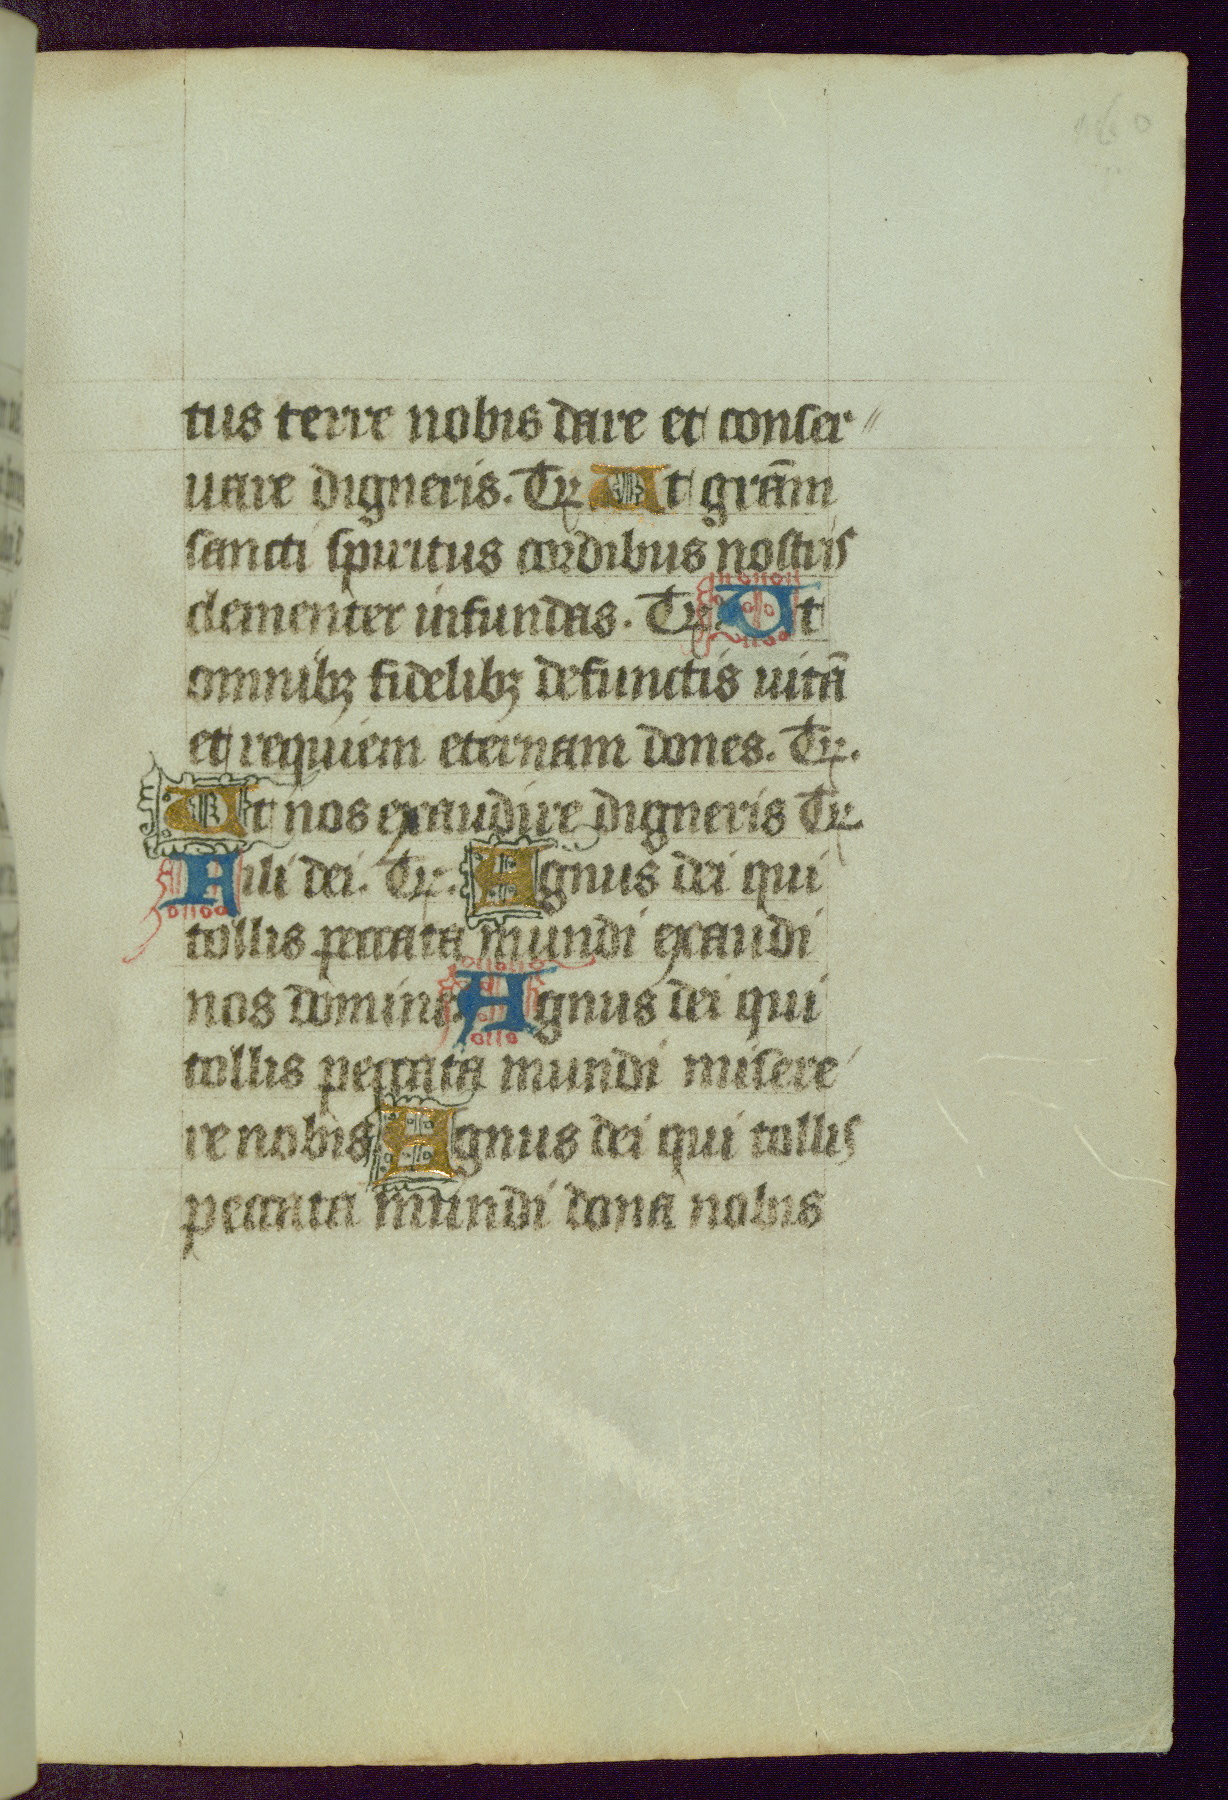 tus terre nobis dare et conser//
uare digneris. Tr̄. Ut grām
sancti spiritus cordibus nostris
clementer infundas. Tr̄. Ut
omnibꝫ fidelibꝫ defunctis uitā
et requiem eternam dones. Tr̄.
Ut nos exaudire digneris Tr̄.
Fili dei. Tr̄. Agnus dei qui
tollis peccata mundi exaudi
nos domine Agnus dei qui
tollis peccata mundi misere/
re nobis Agnus dei qui tollis
peccata mundi dona nobis